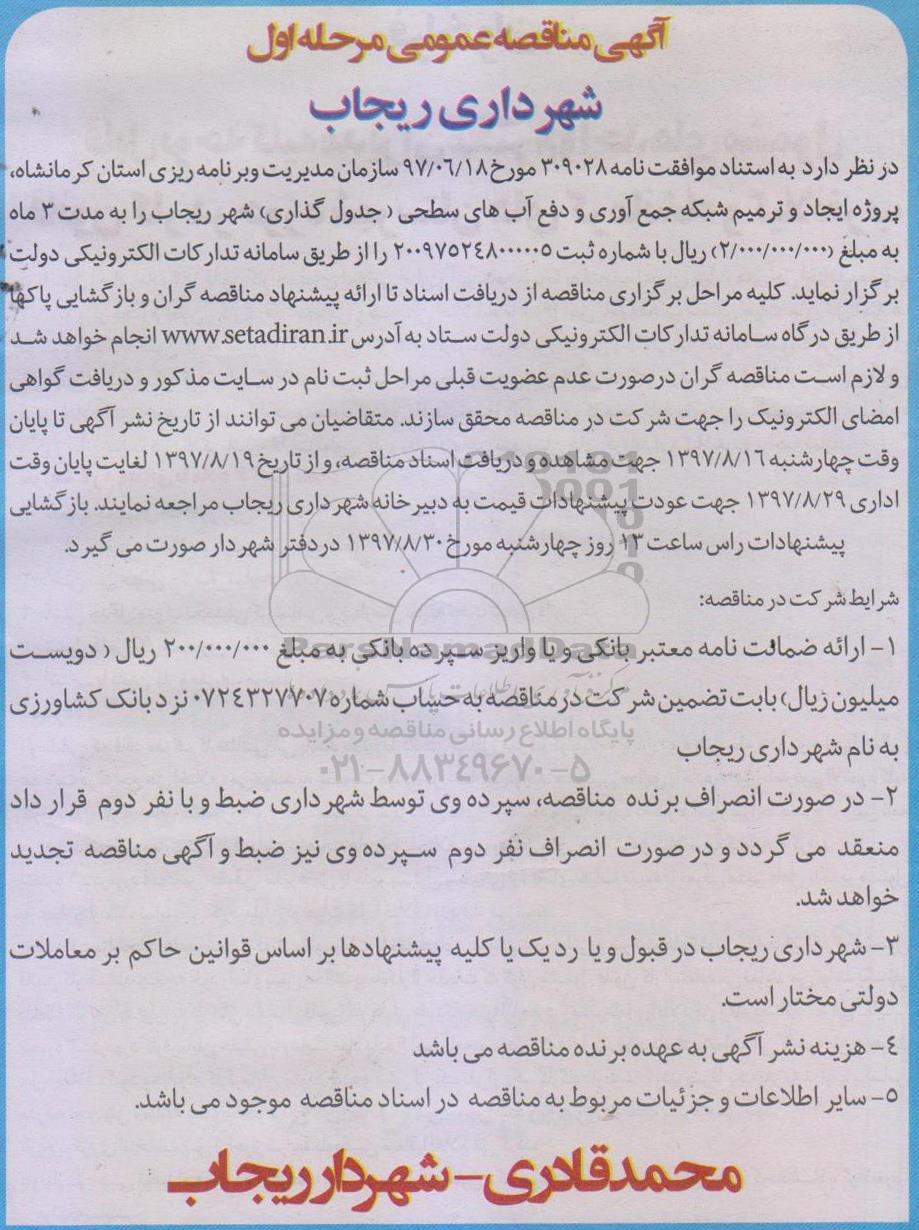 آگهی مناقصه عمومی مرحله اول
شهرداری ریجاب
در نظر دارد به استناد موافقت نامه ۳۰۹۰۲۸ مورخ ۹۷/۰۶/۱۸ سازمان مدیریت وبرنامه ریزی استان کرمانشاه،
پروژه ایجاد و ترمیم شبکه جمع آوری و دفع آب های سطحی (جدول گذاری) شهر ریجاب را به مدت ۳ ماه
به مبلغ (۲/۰۰۰/۰۰۰/۰۰۰) ریال با شماره ثبت ۲۰۰۹۷۵۲۴۸۰۰۰۰۰۵ را از طریق سامانه تدارکات الکترونیکی دولت
برگزار نماید. کلیه مراحل برگزاری مناقصه از دریافت اسناد تا ارائه پیشنهاد مناقصه گران و بازگشایی پاکها
از طریق درگاه سامانه تدارکات الکترونیکی دولت ستاد به آدرس www.setadiran.ir انجام خواهد شد
و لازم است مناقصه گران درصورت عدم عضویت قبلی مراحل ثبت نام در سایت مذکور و دریافت گواهی
امضای الکترونیک را جهت شرکت در مناقصه محقق سازند. متقاضیان می توانند از تاریخ نشر آگهی تا پایان
وقت چهارشنبه ۱۳۹۷/۸/۱۶ جهت مشاهده و دریافت اسناد مناقصه، و از تاریخ ۱۳۹۷/۸/۱۹ لغایت پایان وقت
اداری ۱۳۹۷/۸/۲۹ جهت عودت پیشنهادات قیمت به دبیرخانه شهرداری ریجاب مراجعه نمایند. بازگشایی
پیشنهادات راس ساعت ۱۳ روز چهارشنبه مورخ ۱۳۹۷/۸/۳۰ دردفتر شهردار صورت می گیرد.
شرایط شرکت در مناقصه:
۱- ارائه ضمانت نامه معتبر بانکی و یا واریز سپرده بانکی به مبلغ ۲۰۰/۰۰۰/۰۰۰ ریال (دویست
ParsNamadData
میلیون ریال) بابت تضمین شرکت در مناقصه به حساب شماره ۰۷۲۴۳۲۷۷۰۷ نزد بانک کشاورزی
پایگاه اطلاع رسانی مناقصه و مزایده
به نام شهرداری ریجاب
۰۲۱-۸۸۳۴۹۶۷۰-۵
۲- در صورت انصراف برنده مناقصه، سپرده وی توسط شهرداری ضبط و با نفر دوم قرار داد
منعقد می گردد و در صورت انصراف نفر دوم سپرده وی نیز ضبط و آگهی مناقصه تجدید
خواهد شد.
۳- شهرداری ریجاب در قبول و یا رد یک یا کلیه پیشنهادها بر اساس قوانین حاکم بر معاملات
دولتی مختار است.
۴- هزینه نشر آگهی به عهده برنده مناقصه می باشد
۵- سایر اطلاعات و جزئیات مربوط به مناقصه در اسناد مناقصه موجود می باشد.
محمد قادری - شهردار ریجاب